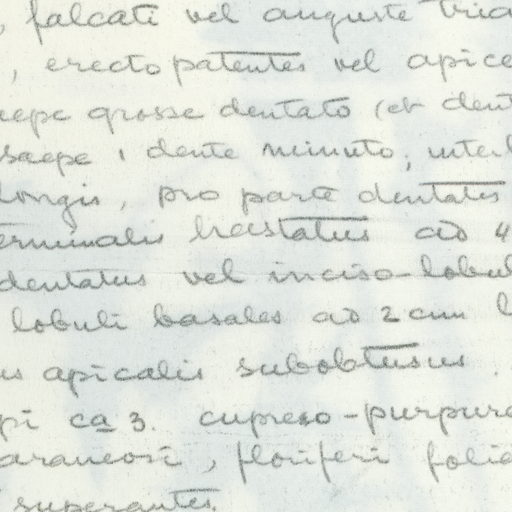 , falcati vel anguste tria
, erecto patentes vel apice
aepe grosse dentato (et dent
saepe 1 dente minuto, inter
longis, pro parte dentatis
erminalis hastatus ad 4
dentatus vel inciso-lobul
lobuli basales ad 2 cm l
us apicalis subobtusus.
pi ca 3. cupreo-purpure
araneosi, floriferi folia
superantes.